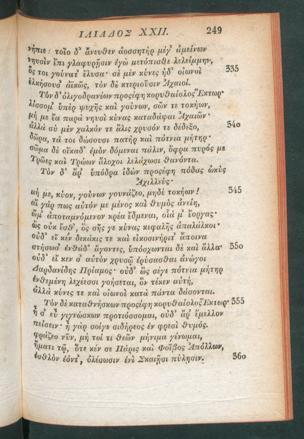 ΙΛΙΑΔΟΣ ΧΧΙΙ. 249
νήπιε· τοῖο δ' ἄνευθεν ἀοσσητὴρ μέγ' ἀμείνων
νηυσὶν ἔπι γλαφυρῇσιν ἐγὼ μετόπισθε λελείμμην,
ὅς τοι γούνατ' ἔλυσα· σὲ μὲν κύνες ἠδ' οἰωνοὶ 335
ἑλκήσουσ' ἀϊκῶς, τὸν δὲ κτεριοῦσιν Ἀχαιοί.
Τὸν δ' ὀλιγοδρανέων προσέφη κορυθαίολος Ἕκτωρ·
λίσσομ' ὑπὲρ ψυχῆς καὶ γούνων, σῶν τε τοκήων,
μή με ἔα παρὰ νηυσὶ κύνας καταδάψαι Ἀχαιῶν·
ἀλλὰ σὺ μὲν χαλκόν τε ἅλις χρυσόν τε δέδεξο, 340
δῶρα, τά τοι δώσουσι πατὴρ καὶ πότνια μήτηρ·
σῶμα δὲ οἴκαδ' ἐμὸν δόμεναι πάλιν, ὄφρα πυρός με
Τρῶες καὶ Τρώων ἄλοχοι λελάχωσι θανόντα.
Τὸν δ' ἄρ' ὑπόδρα ἰδὼν προσέφη πόδας ὠκὺς
Ἀχιλλεύς·
μή με, κύον, γούνων γουνάζεο, μηδὲ τοκήων! 345
αἲ γάρ πως αὐτόν με μένος καὶ θυμὸς ἀνείη,
ὤμ' ἀποταμνόμενον κρέα ἔδμεναι, οἷά μ' ἔοργας·
ὡς οὐκ ἔσθ', ὃς σῆς γε κύνας κεφαλῆς ἀπαλάλκοι·
οὐδ' εἴ κεν δεκάκις τε καὶ εἰκοσινήριτ' ἄποινα
στήσωσ' ἐνθάδ' ἄγοντες, ὑπόσχωνται δὲ καὶ ἄλλα· 350
οὐδ' εἴ κεν σ' αὐτὸν χρυσῷ ἐρύσασθαι ἀνώγοι
Δαρδανίδης Πρίαμος· οὐδ' ὣς σέγε πότνια μήτηρ
ἐνθεμένη λεχέεσσι γοήσεται, ὃν τέκεν αὐτή,
ἀλλὰ κύνες τε καὶ οἰωνοὶ κατὰ πάντα δάσονται.
Τὸν δὲ καταθνήσκων προσέφη κορυθαίολος Ἕκτωρ· 355
ἦ σ' εὖ γιγνώσκων προτιόσσομαι, οὐδ' ἄρ' ἔμελλον
πείσειν· ἦ γὰρ σοίγε σιδήρεος ἐν φρεσὶ θυμός.
φράζεο νῦν, μή τοί τι θεῶν μήνιμα γένωμαι,
ἤματι τῷ, ὅτε κέν σε Πάρις καὶ Φοῖβος Ἀπόλλων,
ἐσθλὸν ἐόντ', ὀλέσωσιν ἐνὶ Σκαιῇσι πύλῃσιν. 360